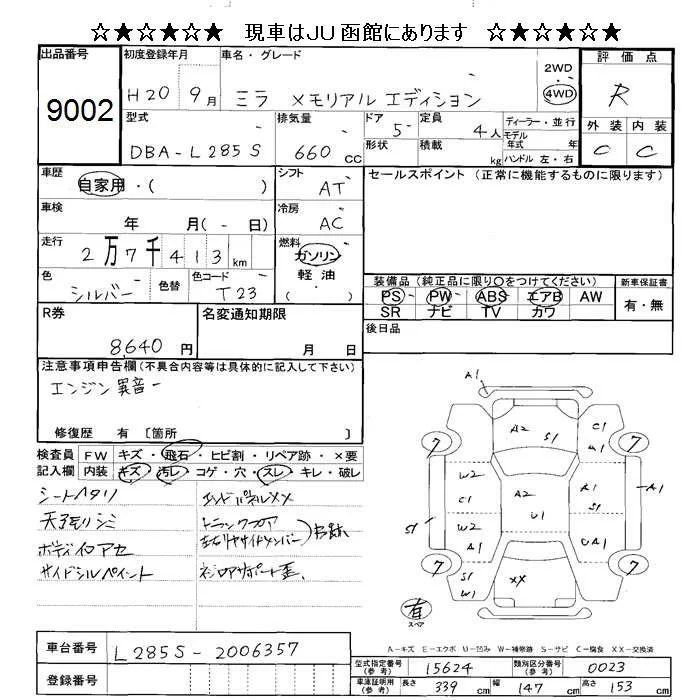 ☆★☆★☆★ 現車はJU函館にあります ☆★☆★☆★
出品番号 9002
初度登録年月 H20 9月
車名・グレード ミラ メモリアル エディション
2WD 4WD
評価点 R
外装 内装
C C
型式 DBA-L285S
排気量 660 cc
ドア 5
定員 4人
形状
積載 kg
ディーラー・並行
モデル年式 年
ハンドル 左・右
車歴 自家用・( )
シフト AT
車検 年 月(-日)
冷房 AC
走行 2万7千413km
燃料 ガソリン 軽油 ( )
色 シルバー 色替 色コード T23
セールスポイント(正常に機能するものに限ります)
装備品(純正品に限り○をつけてください)
PS PW ABS エアB AW
SR ナビ TV カワ
新車保証書 有・無
後日品
R券 8,640円
名変通知期限 月 日
注意事項申告欄(不具合内容等は具体的に記入して下さい)
エンジン異音
修復歴 有 〔箇所 〕
検査員記入欄
FW キズ・飛石・ヒビ割・リペア跡・×要
内装 キズ・汚レ・コゲ・穴・スレ・キレ・破レ
シートヘタリ
天張リシミ
ボディイロアセ
サイドシルペイント
エンドパネルXX
トランクフロア
左右リヤサイドメンバー
A1
A2 S1 C1 U1
7 7
W2 C1 A2 U1 A1 S1
S1 A1
W2 A1 UA1
7 7
S1 W1 XX
有 スペア
A-キズ E-エクボ U-凹み W-補修跡 S-サビ C-腐食 XX-交換済
車台番号 L285S-2006357
登録番号
型式指定番号(参考) 15624
類別区分番号(参考) 0023
車庫証明用(参考) 長さ 339 cm 幅 147 cm 高さ 153 cm